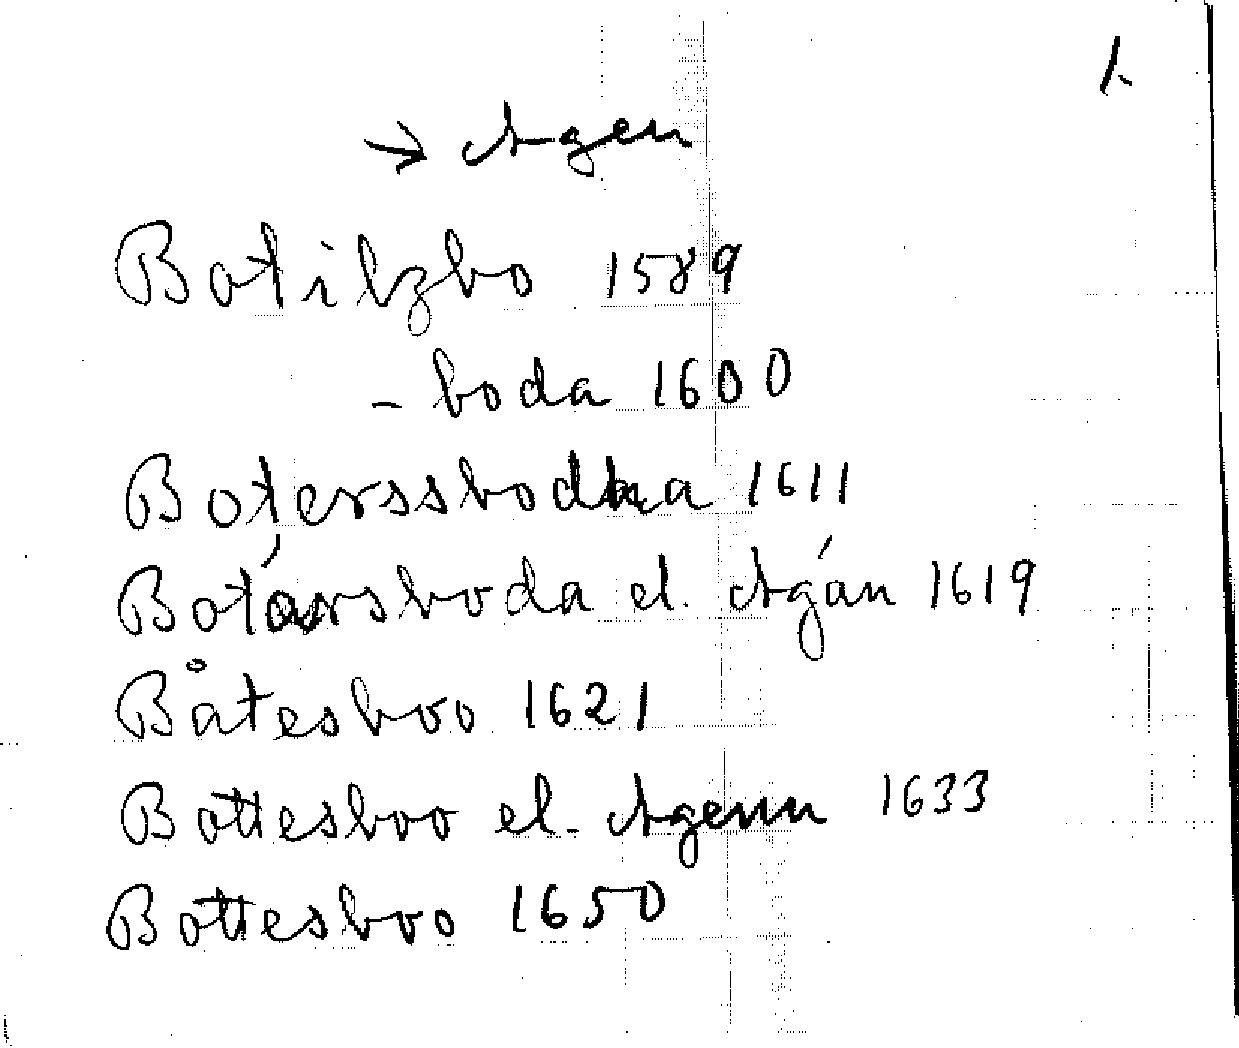 1.
→ Agen
Botilzbo 1589
- boda 1600
Boterssbodha 1611
Botarsboda el. Agán 1619
Båtesboo 1621
Bottesboo el. Agenn 1633
Bottesboo 1650